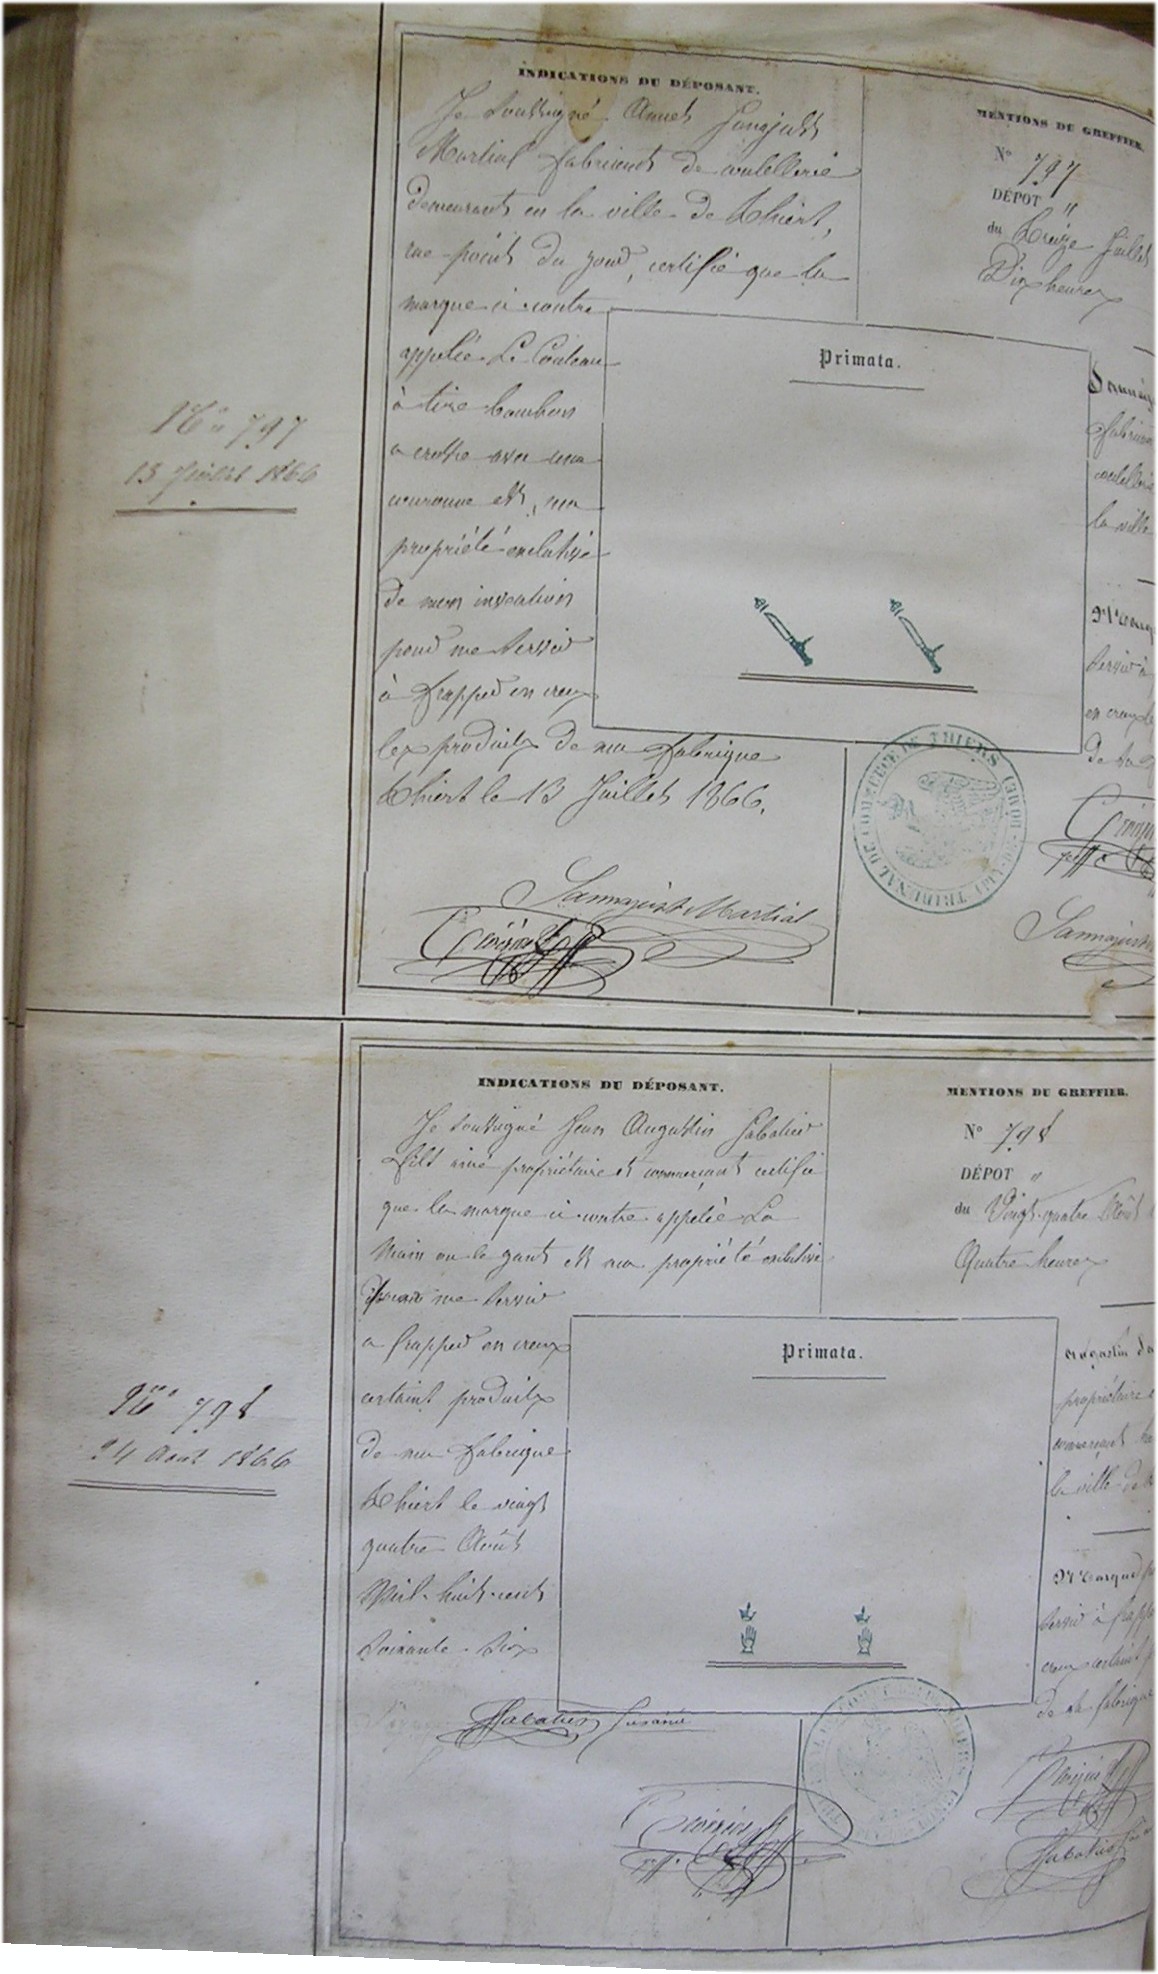 N° 797
13 Juillet 1866
INDICATIONS DU DÉPOSANT.
Je soussigné Annet
Martial fabricant de coutellerie
demeurant en la ville de Thiers,
rue point du jour, certifie que la
marque ci contre
appelée Le Couteau
à tire bouchon
avec une
couronne est ma
propriété exclusive
de mon invention
pour me servir
à frapper en creux
les produits de ma fabrique
Thiers le 13 Juillet 1866.
Sannajust Martial
MENTIONS DU GREFFIER.
N° 797
DÉPOT "
du treize Juillet
Dix heures
Primata.
fabrican
coutellerie
la ville
Marque
servir à
en creux
de sa
TRIBUNAL DE COMMERCE DE THIERS (PUY-DE-DOME)
Sannajust
N° 798
24 Aout 1866
INDICATIONS DU DÉPOSANT.
Je soussigné Jean Augustin Sabatier
fils ainé propriétaire et commerçant certifie
que la marque ci contre appelée La
Main ou le gant est ma propriété exclusive
pour me servir
a frapper en creux
certains produits
de ma fabrique
Thiers le vingt
quatre Août
Mil huit cent
soixante six
Sabatier fils ainé
MENTIONS DU GREFFIER.
N° 798
DÉPOT "
du Vingt quatre Août
Quatre heures
Primata.
propriétaire
commerçant
la ville de
Marque
servir à frapp
creux certains
de sa fabrique
Sabatier